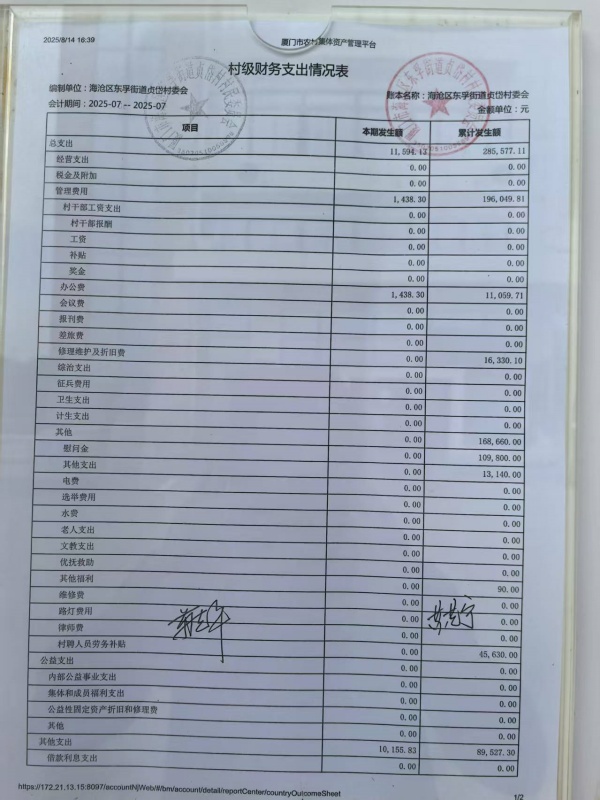 2025/8/14 16:39
厦门市农村集体资产管理平台
村级财务支出情况表
编制单位：海沧区东孚街道贞岱村委会
账本名称：海沧区东孚街道贞岱村委会
会计期间：2025-07 -- 2025-07
金额单位：元
项目 本期发生额 累计发生额
总支出 11,594.13 285,577.11
经营支出 0.00 0.00
税金及附加 0.00 0.00
管理费用 1,438.30 196,049.81
村干部工资支出 0.00 0.00
村干部报酬 0.00 0.00
工资 0.00 0.00
补贴 0.00 0.00
奖金 0.00 0.00
办公费 1,438.30 11,059.71
会议费 0.00 0.00
报刊费 0.00 0.00
差旅费 0.00 0.00
修理维护及折旧费 0.00 16,330.10
综治支出 0.00 0.00
征兵费用 0.00 0.00
卫生支出 0.00 0.00
计生支出 0.00 0.00
其他 0.00 168,660.00
慰问金 0.00 109,800.00
其他支出 0.00 13,140.00
电费 0.00 0.00
选举费用 0.00 0.00
水费 0.00 0.00
老人支出 0.00 0.00
文教支出 0.00 0.00
优抚救助 0.00 0.00
其他福利 0.00 90.00
维修费 0.00 0.00
路灯费用 0.00 0.00
律师费 0.00 0.00
村聘人员劳务补贴 0.00 45,630.00
公益支出 0.00 0.00
内部公益事业支出 0.00 0.00
集体和成员福利支出 0.00 0.00
公益性固定资产折旧和修理费 0.00 0.00
其他 0.00 0.00
其他支出 10,155.83 89,527.30
借款利息支出 0.00 0.00
https://172.21.13.15:8097/accountNjWeb/#/bm/account/detail/reportCenter/countryOutcomeSheet
1/2